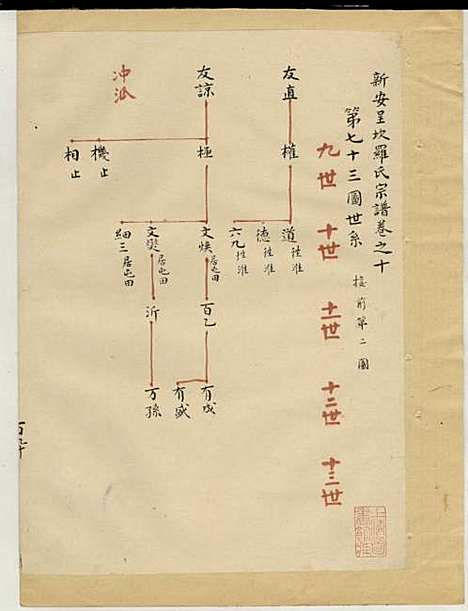 新安呈坎羅氏宗譜卷之十
第七十三圖世系 接前第二圖
九世 十世 十一世 十二世 十三世
友直 權 道 徃淮
德 徃淮
六九 徃淮
友諒 極 文煥 居屯田 百乙 有成
有盛
文奬 居屯田 沂 万孫
細三 居屯田
機 止
相 止
冲派